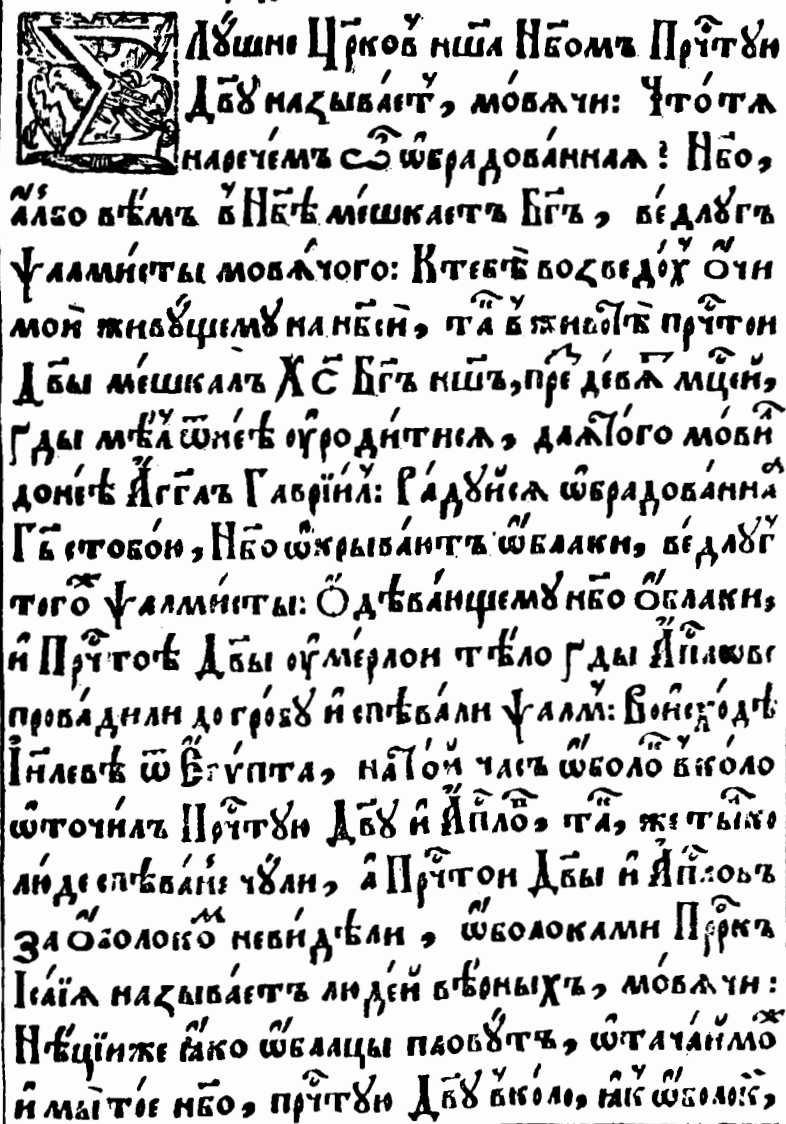 Слꙋ́шне Цр҃ковъ нш҃а Нб҃омъ Прч҃тꙋю
Дв҃ꙋ називаетъ, мо́вѧчи: Что́ тѧ
нарече́мъ ѽ ѡ҆брадова́ннаѧ? Нб҃о,
а҆́лбо вѣ́мъ в Нб҃ѣ ме́шкаетъ Бг҃ъ, ве́длꙋгъ
Ѱалми́сты мовѧ́чого: К тебѣ̀ возведо́хъ ѻ҆́чи
моѝ живꙋ́щемꙋ на нб҃сѝ, та́къ в животѣ̀ прч҃тои
Дв҃ы ме́шкалъ Хс҃ Бг҃ъ нш҃ъ, пред де́вѧт мц҃ей,
ґды мѣ́лъ ѿ не́ѣ ᲂу҆роди́тисѧ, длѧ то́го мо́вил
до не́ѣ А҆́гг҃лъ Гаврїи́лъ: Ра́дꙋйсѧ ѡ҆брадова́ннаѧ
Гь҃ с тобо́ю, Нб҃о ѡ҆крыва́ютъ ѡ҆́блаки, ве́длꙋгъ
того́жъ ѱалми́сты: Ѻ҆дѣва́ющемꙋ нб҃о ѻ҆́блаки,
и҆ Прч҃тоѣ Дв҃ы ᲂу҆ме́рлои тѣ́ло ґды А҆пⷭ҇лѡве
прова́дили до гро́бꙋ и҆ спѣва́ли ѱалмъ: Во и҆схо́дѣ
І҆и҃левѣ ѿ Е҆гѵ́пта, на то́й часъ ѡ҆́болокъ вко́ло
ѡ҆точи́лъ Прч҃тꙋю Дв҃ꙋ и҆ А҆пⷭ҇лѡвъ, та́къ, же ты́лко
лю́де спѣва́нїе чꙋ́ли, а҆ Прч҃тои Дв҃ы и҆ А҆пⷭ҇ловъ
за ѻ҆́болокомъ неви́дѣли, ѡ҆́болоками Прⷪ҇ркъ
І҆са́їѧ называ́етъ люде́й вѣ́рныхъ, мо́вѧчи:
Нѣ́цїи же ꙗ҆́ко ѡ҆́блацы пловꙋ́тъ, ѡ҆тача́йможъ
и҆ мы̀ то́е нб҃о, прч҃тꙋю Дв҃ꙋ вко́ло, ꙗ҆́къ ѡ҆́болокъ,